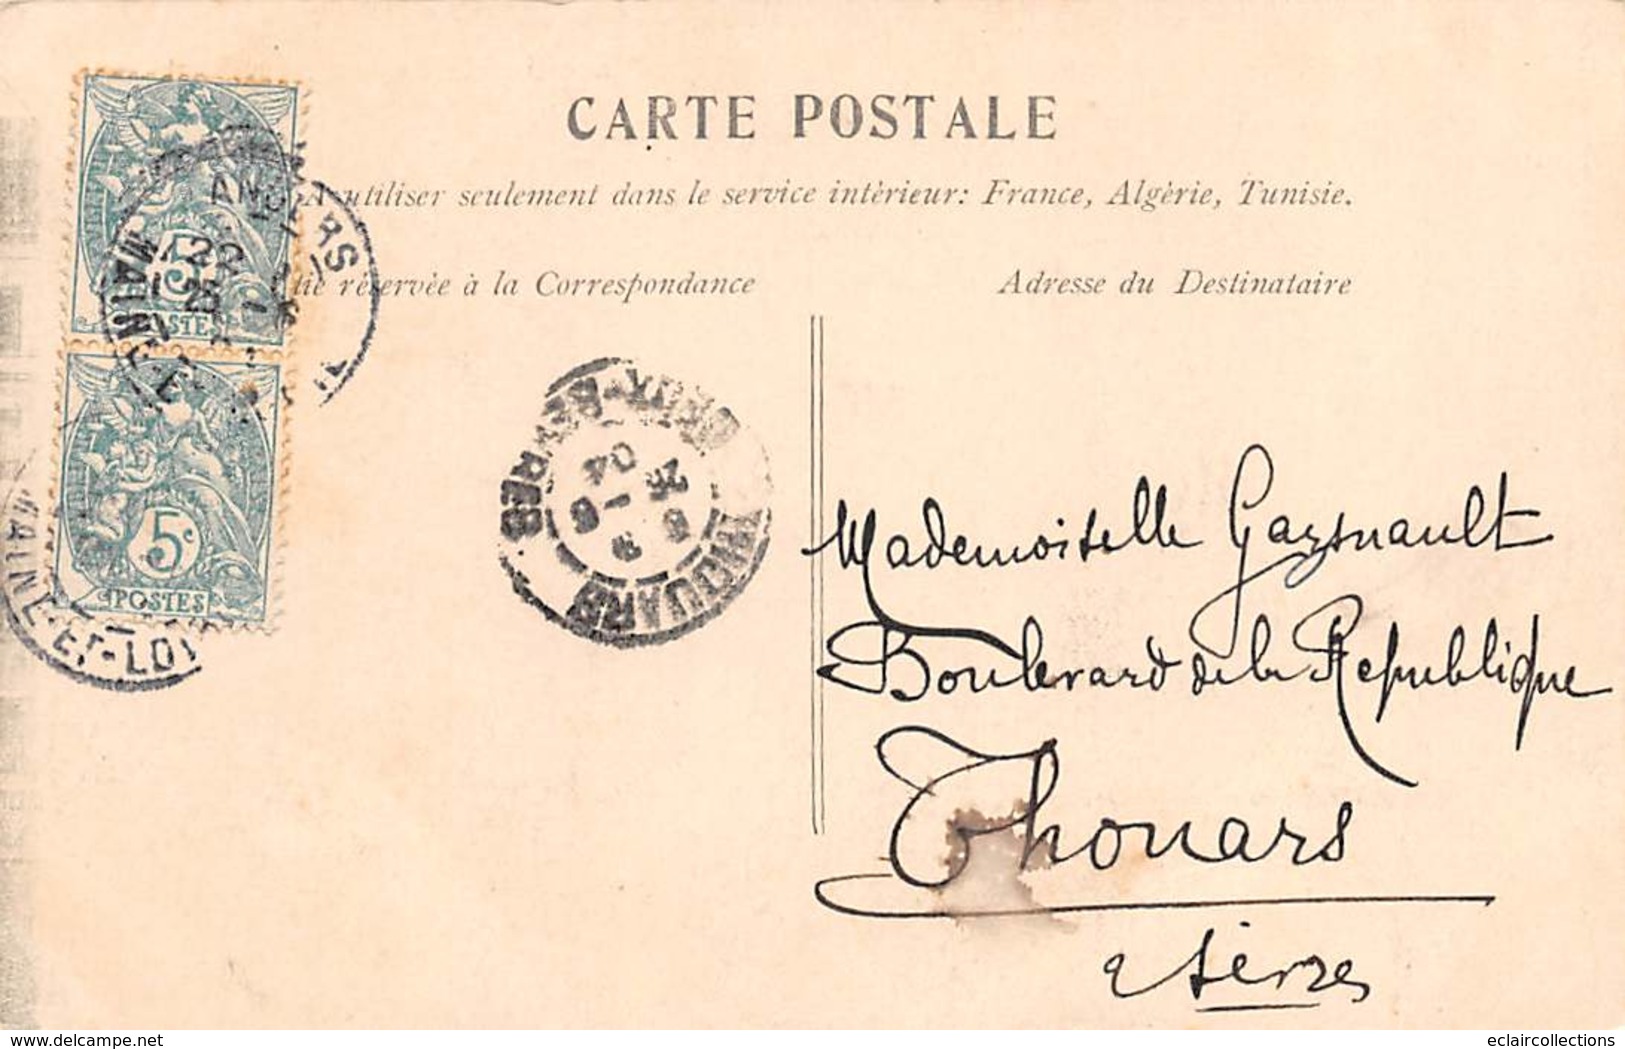 CARTE POSTALE
A utiliser seulement dans le service intérieur: France, Algérie, Tunisie.
réservée à la Correspondance
Adresse du Destinataire
ANGERS
MAINE-E
5
POSTES
5c
POSTES
MAINE-ET-LOI
THOUARS
04
Mademoiselle
Boulevard de la Republique
Thouars
2 Sèvres
delcampe.net
eclaircollections